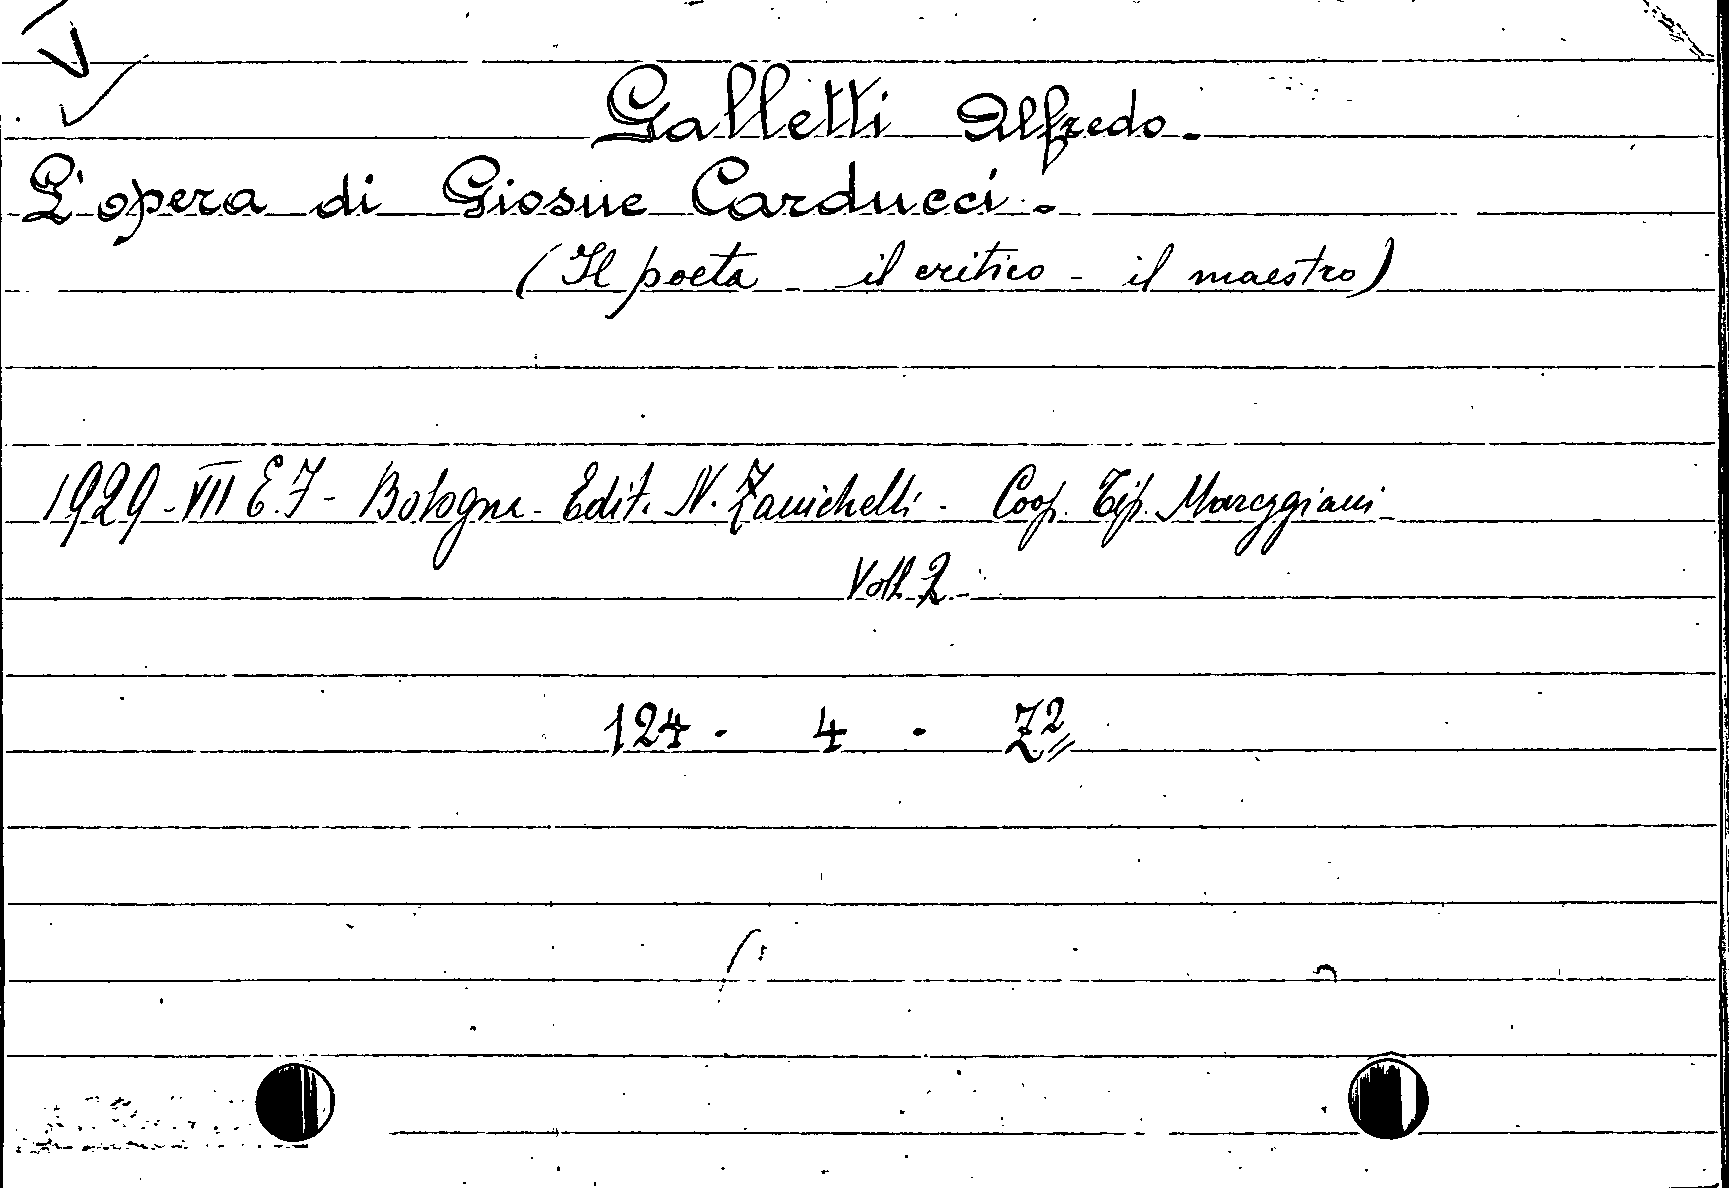 Galletti Alfredo.
L'opera di Giosue Carducci.
(Il poeta - il critico - il maestro)
1929 - VII E.F - Bologna - Edit. N. Zanichelli - Coop. Tip. Mareggiani -
Voll. 2 -
124 . 4 . Z²